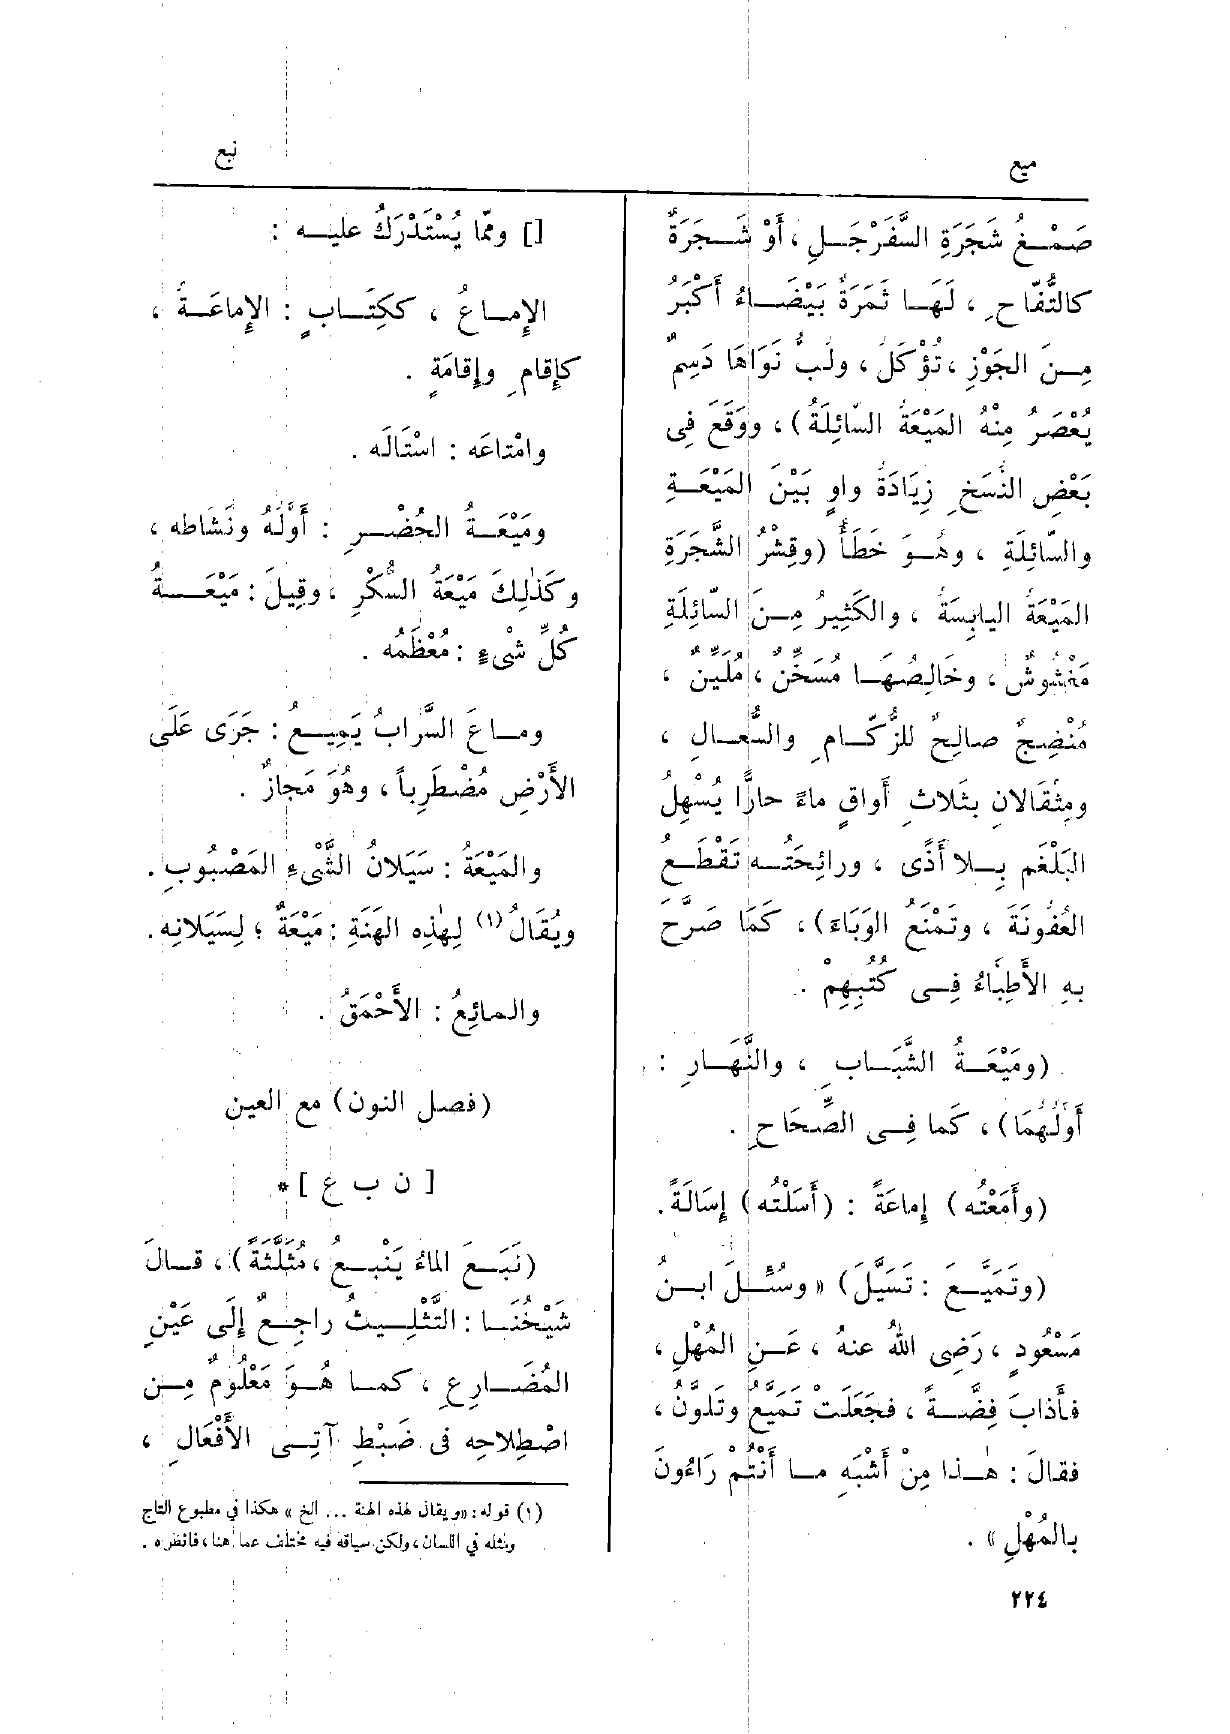 ميع
نبع
صَمْغُ شَجَرَةِ السَّفَرْجَلِ ، أَوْ شَجَرَةٌ
كالتُّفّاحِ ، لَهَا ثَمَرَةٌ بَيْضَاءُ أَكْبَرُ
مِنَ الجَوْزِ ، تُؤْكَلُ ، ولُبُّ نَوَاهَا دَسِمٌ
يُعْصَرُ مِنْهُ المَيْعَةُ السّائِلَةُ) ، ووَقَعَ فِى
بَعْضِ النُّسَخِ زِيَادَةُ واوٍ بَيْنَ المَيْعَةِ
والسّائِلَةِ ، وهُوَ خَطَأٌ (وقِشْرُ الشَّجَرَةِ
المَيْعَةُ اليابِسَةُ ، والكَثِيرُ مِنَ السّائِلَةِ
مَغْشُوشٌ ، وخَالِصُهَا مُسَخِّنٌ ، مُلَيِّنٌ ،
مُنْضِجٌ صالِحٌ للزُّكَامِ والسُّعَالِ ،
ومِثْقَالانِ بثَلاثِ أَواقٍ ماءً حارًّا يُسْهِلُ
البَلْغَمَ بِلا أَذًى ، ورائِحَتُه تَقْطَعُ
العُفُونَةَ ، وتَمْنَعُ الوَبَاءَ) ، كَمَا صَرَّحَ
بهِ الأَطِبّاءُ فِى كُتُبِهِمْ .
(ومَيْعَةُ الشَّبَابِ ، والنَّهَارِ :
أَوَّلُهُمَا) ، كَما فِى الصِّحَاحِ .
(وأَمَعْتُه) إِماعَةً : (أَسَلْتُه) إِسَالَةً .
(وتَمَيَّعَ : تَسَيَّلَ) «وسُئِلَ ابنُ
مَسْعُودٍ ، رَضِى اللهُ عنهُ ، عَنِ المُهْلِ ،
فأَذابَ فِضَّةً ، فجَعَلَتْ تَمَيَّعُ وتَلَوَّنُ ،
فقالَ : هٰذا مِنْ أَشْبَهِ ما أَنْتُمْ رَاءُونَ
بالمُهْلِ» .
[] وممّا يُسْتَدْرَكُ عليه :
الإِماعُ ، ككِتَابٍ : الإِماعَةُ ،
كإِقامِ وإِقامَةٍ .
وامْتاعَه : اسْتَالَه .
ومَيْعَةُ الحُضْرِ : أَوَّلُهُ ونَشَاطه ،
وكَذٰلِكَ مَيْعَةُ السُّكْرِ ، وقِيلَ : مَيْعَةُ
كُلِّ شَىْءٍ : مُعْظَمُه .
وماعَ السَّرابُ يَمِيعُ : جَرَى عَلَى
الأَرْضِ مُضْطَرِباً ، وهُوَ مَجازٌ .
والمَيْعَةُ : سَيَلانُ الشَّىْءِ المَصْبُوبِ .
ويُقَالُ (١) لِهٰذِه الهَنَةِ : مَيْعَةٌ ؛ لِسَيَلانِه .
والمائِعُ : الأَحْمَقُ .
(فصل النون) مع العين
[ ن ب ع ] *
(نَبَعَ الماءُ يَنْبعُ ، مُثَلَّثَةً) ، قالَ
شَيْخُنَا : التَّثْلِيثُ راجِعٌ إِلَى عَيْنِ
المُضَارِعِ ، كما هُوَ مَعْلُومٌ مِن
اصْطِلاحِه فى ضَبْطِ آتِى الأَفْعَالِ ،
(١) قوله : «ويقال لهذه الهنة ... الخ» هكذا في مطبوع التاج
ومثله في اللسان ، ولكن سياقه فيه مختلف عما هنا ، فانظره .
٢٢٤